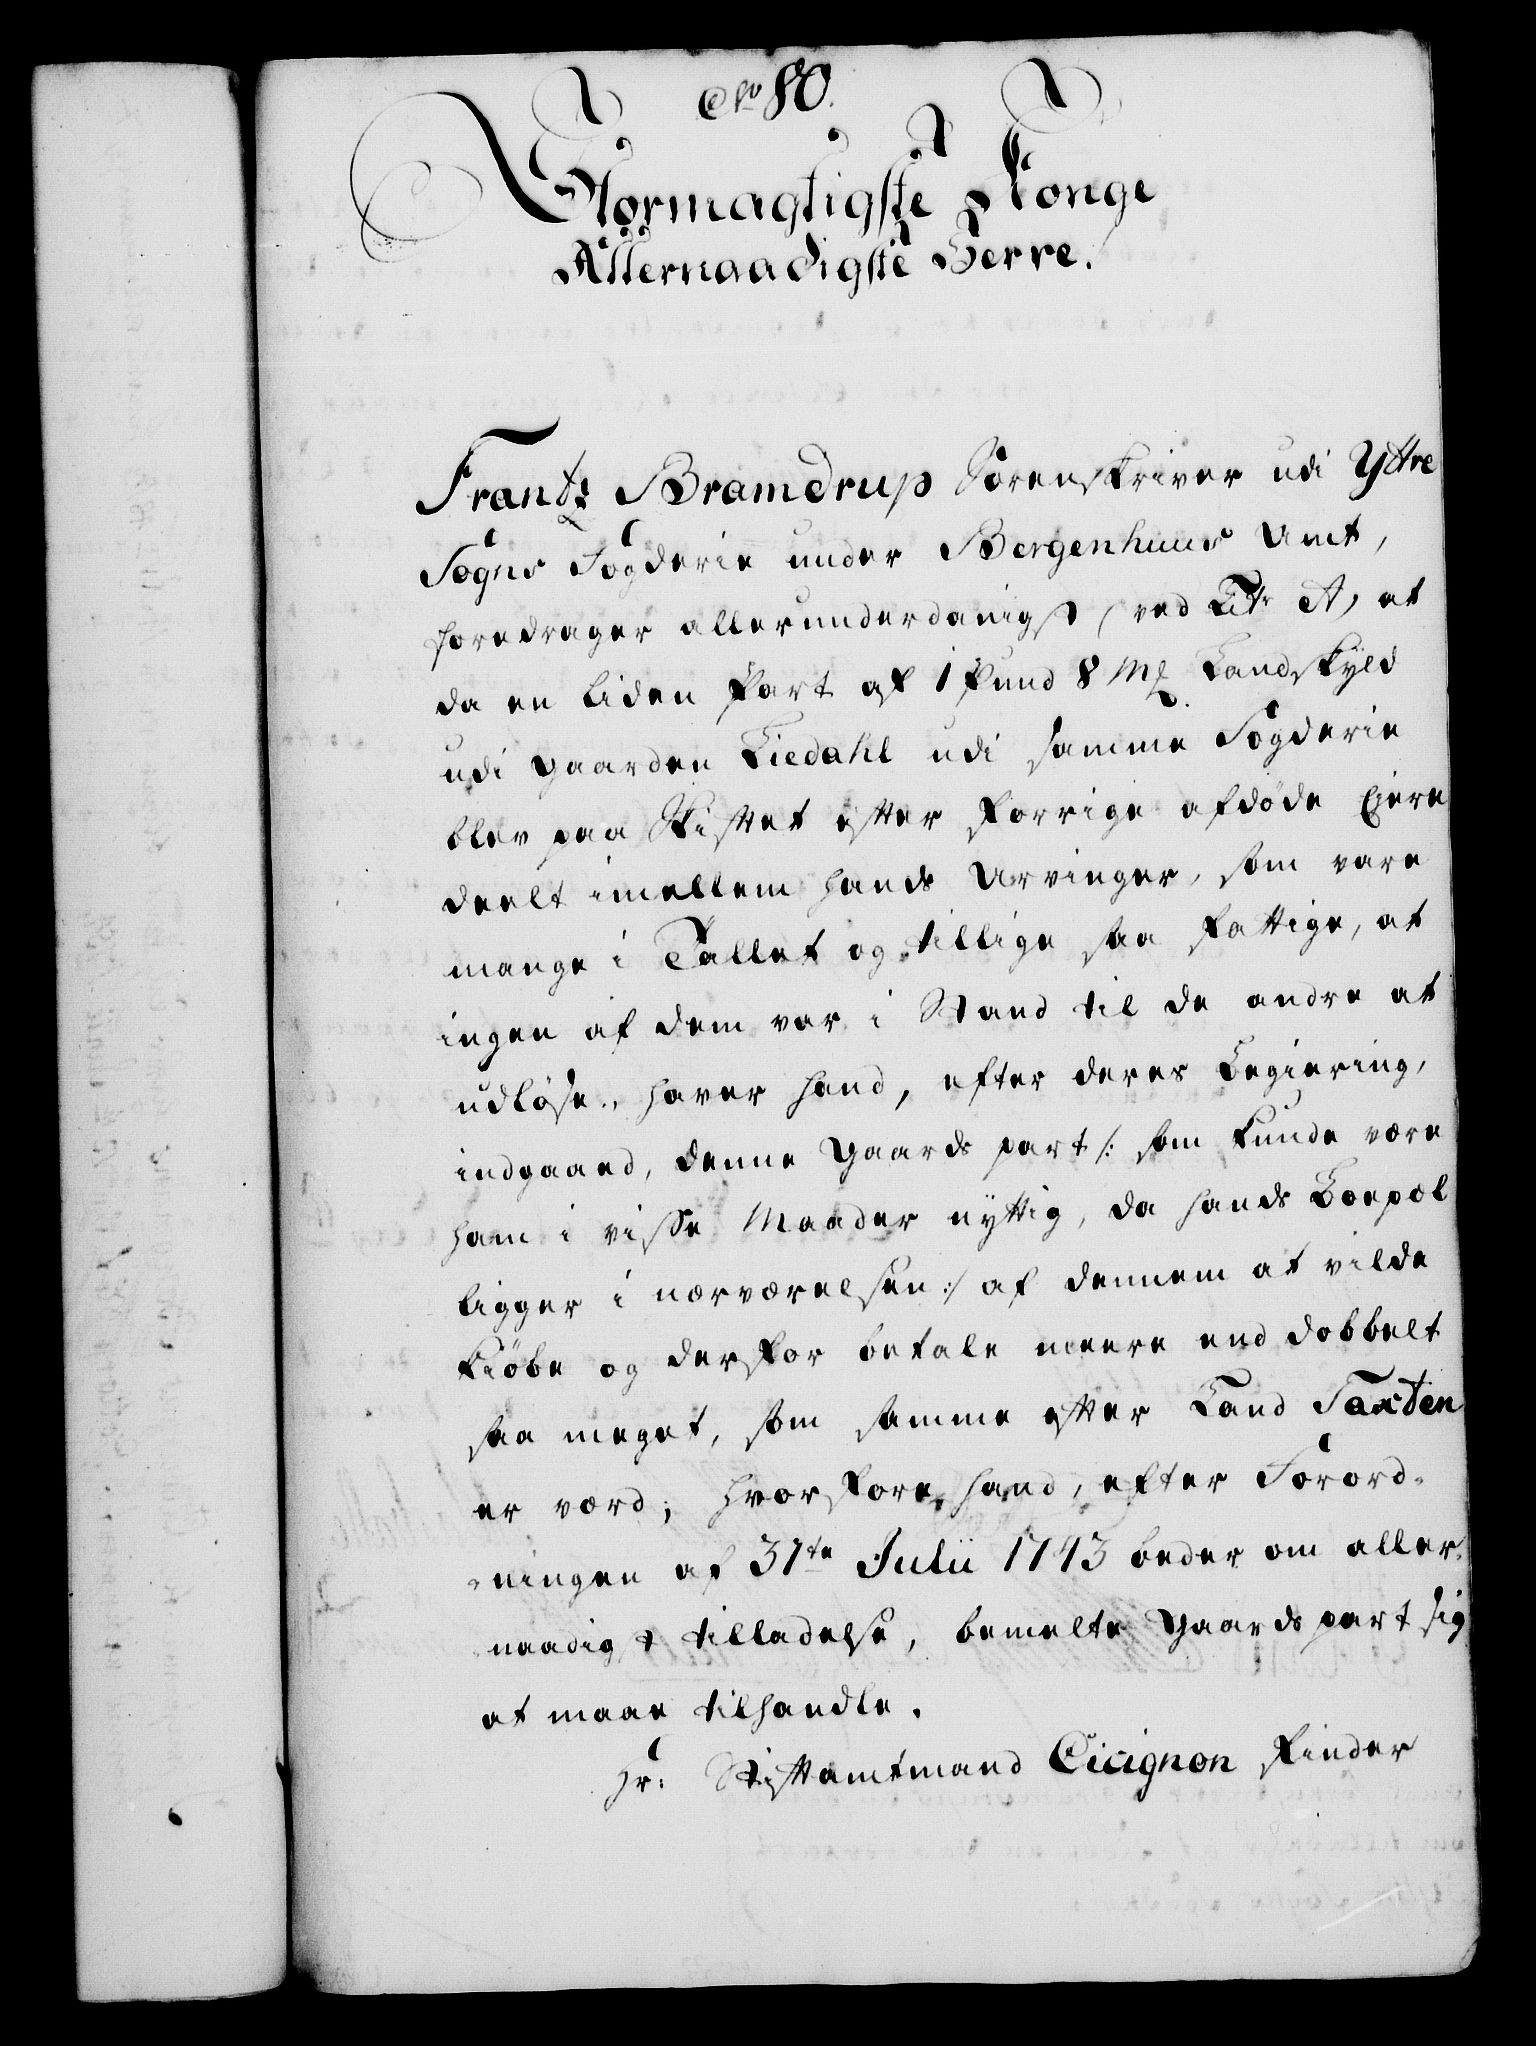 No 80.
Stormægtigste Konge
Allernaadigste Herre.
Frantz Bramdrup Sorenskriver udi Yttre
Sogns Fogderie under Bergenhuus Amt,
foredrager allerunderdanigst (ved Litr A) at
da en liden Part af 1 Pund 8 Mk Landskyld
udi Gaarden Liedahl udi samme Fogderie
blev paa Skiftet efter forrige afdøde Ejere
deelt imellem hands Arvinger, som vare
mange i Tallet og tillige saa fattige, at
ingen af dem var i Stand til de andre at
udløse, haver hand, efter deres Begiering,
indgaaed, denne Gaards part /: som kunde være
ham i visse Maader nyttig, da hands Boepæl
ligger i nærværelsen :/ af dennem at vilde
kiøbe og derfor betale meere end dobbelt
saa meget, som samme efter Land Taxten
er værd; hvorfore hand, efter Forord-
-ningen af 31te Julii 1743 beder om aller-
naadigst tilladelse, bemelte Gaards part sig
at maae tilhandle.
Hr: Stiftamtmand Cicignon finder